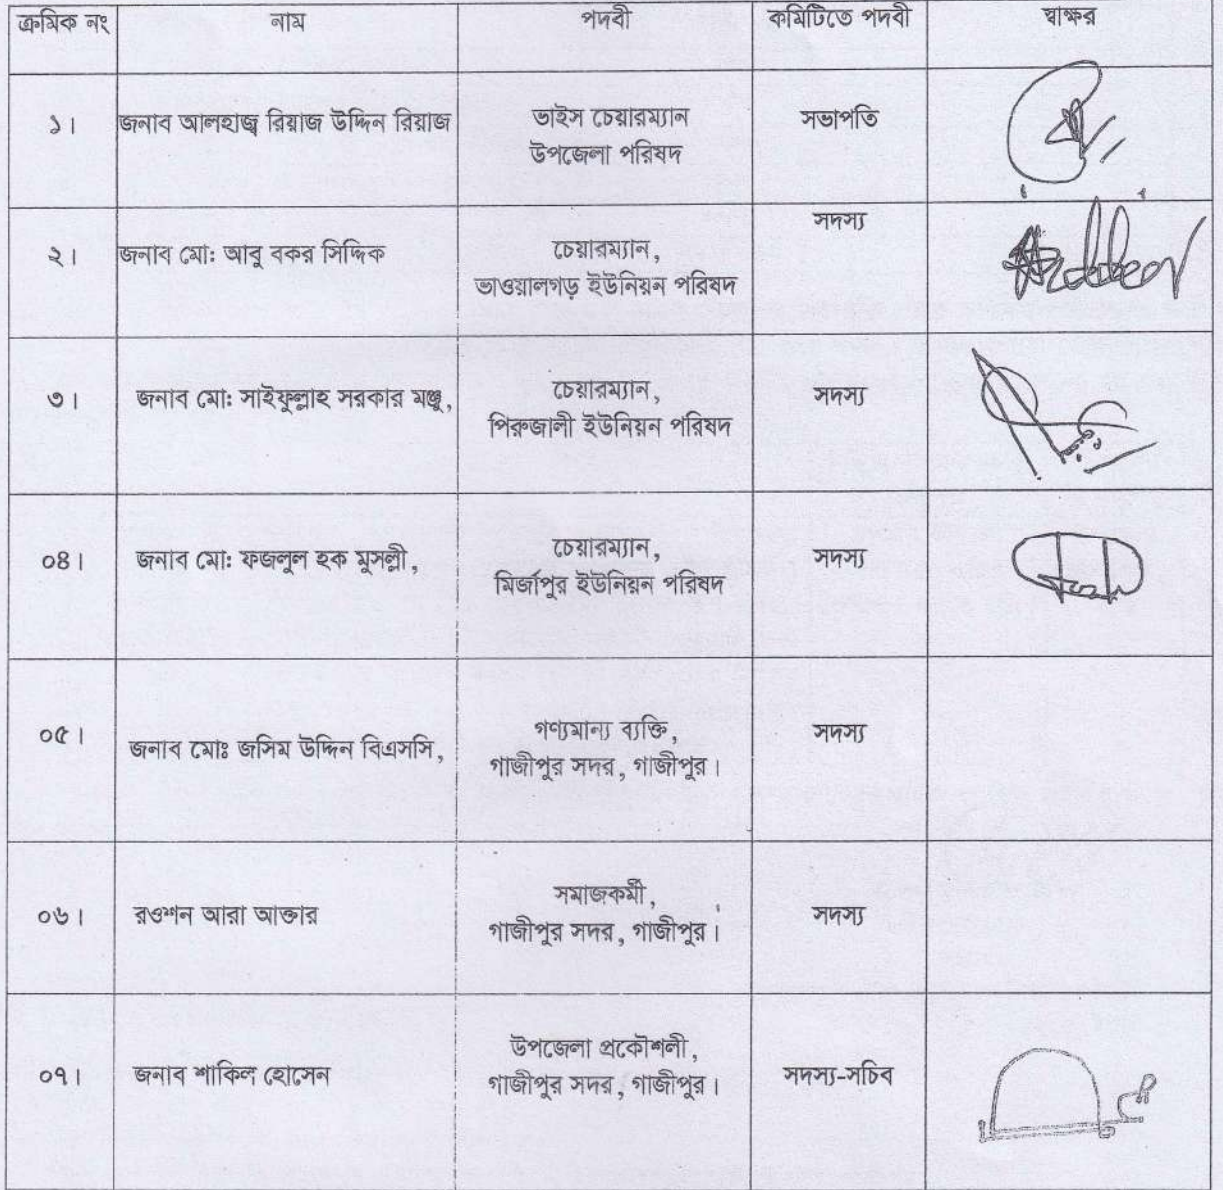 ক্রমিক নং নাম পদবী কমিটিতে পদবী স্বাক্ষর
১। জনাব আলহাজ্ব রিয়াজ উদ্দিন রিয়াজ ভাইস চেয়ারম্যান সভাপতি
উপজেলা পরিষদ
২। জনাব মো: আবু বকর সিদ্দিক চেয়ারম্যান, সদস্য
ভাওয়ালগড় ইউনিয়ন পরিষদ
৩। জনাব মো: সাইফুল্লাহ সরকার মঞ্জু, চেয়ারম্যান, সদস্য
পিরুজালী ইউনিয়ন পরিষদ
০৪। জনাব মো: ফজলুল হক মুসল্লী, চেয়ারম্যান, সদস্য
মির্জাপুর ইউনিয়ন পরিষদ
০৫। জনাব মোঃ জসিম উদ্দিন বিএসসি, গণ্যমান্য ব্যক্তি, সদস্য
গাজীপুর সদর, গাজীপুর।
০৬। রওশন আরা আক্তার সমাজকর্মী, সদস্য
গাজীপুর সদর, গাজীপুর।
০৭। জনাব শাকিল হোসেন উপজেলা প্রকৌশলী, সদস্য-সচিব
গাজীপুর সদর, গাজীপুর।